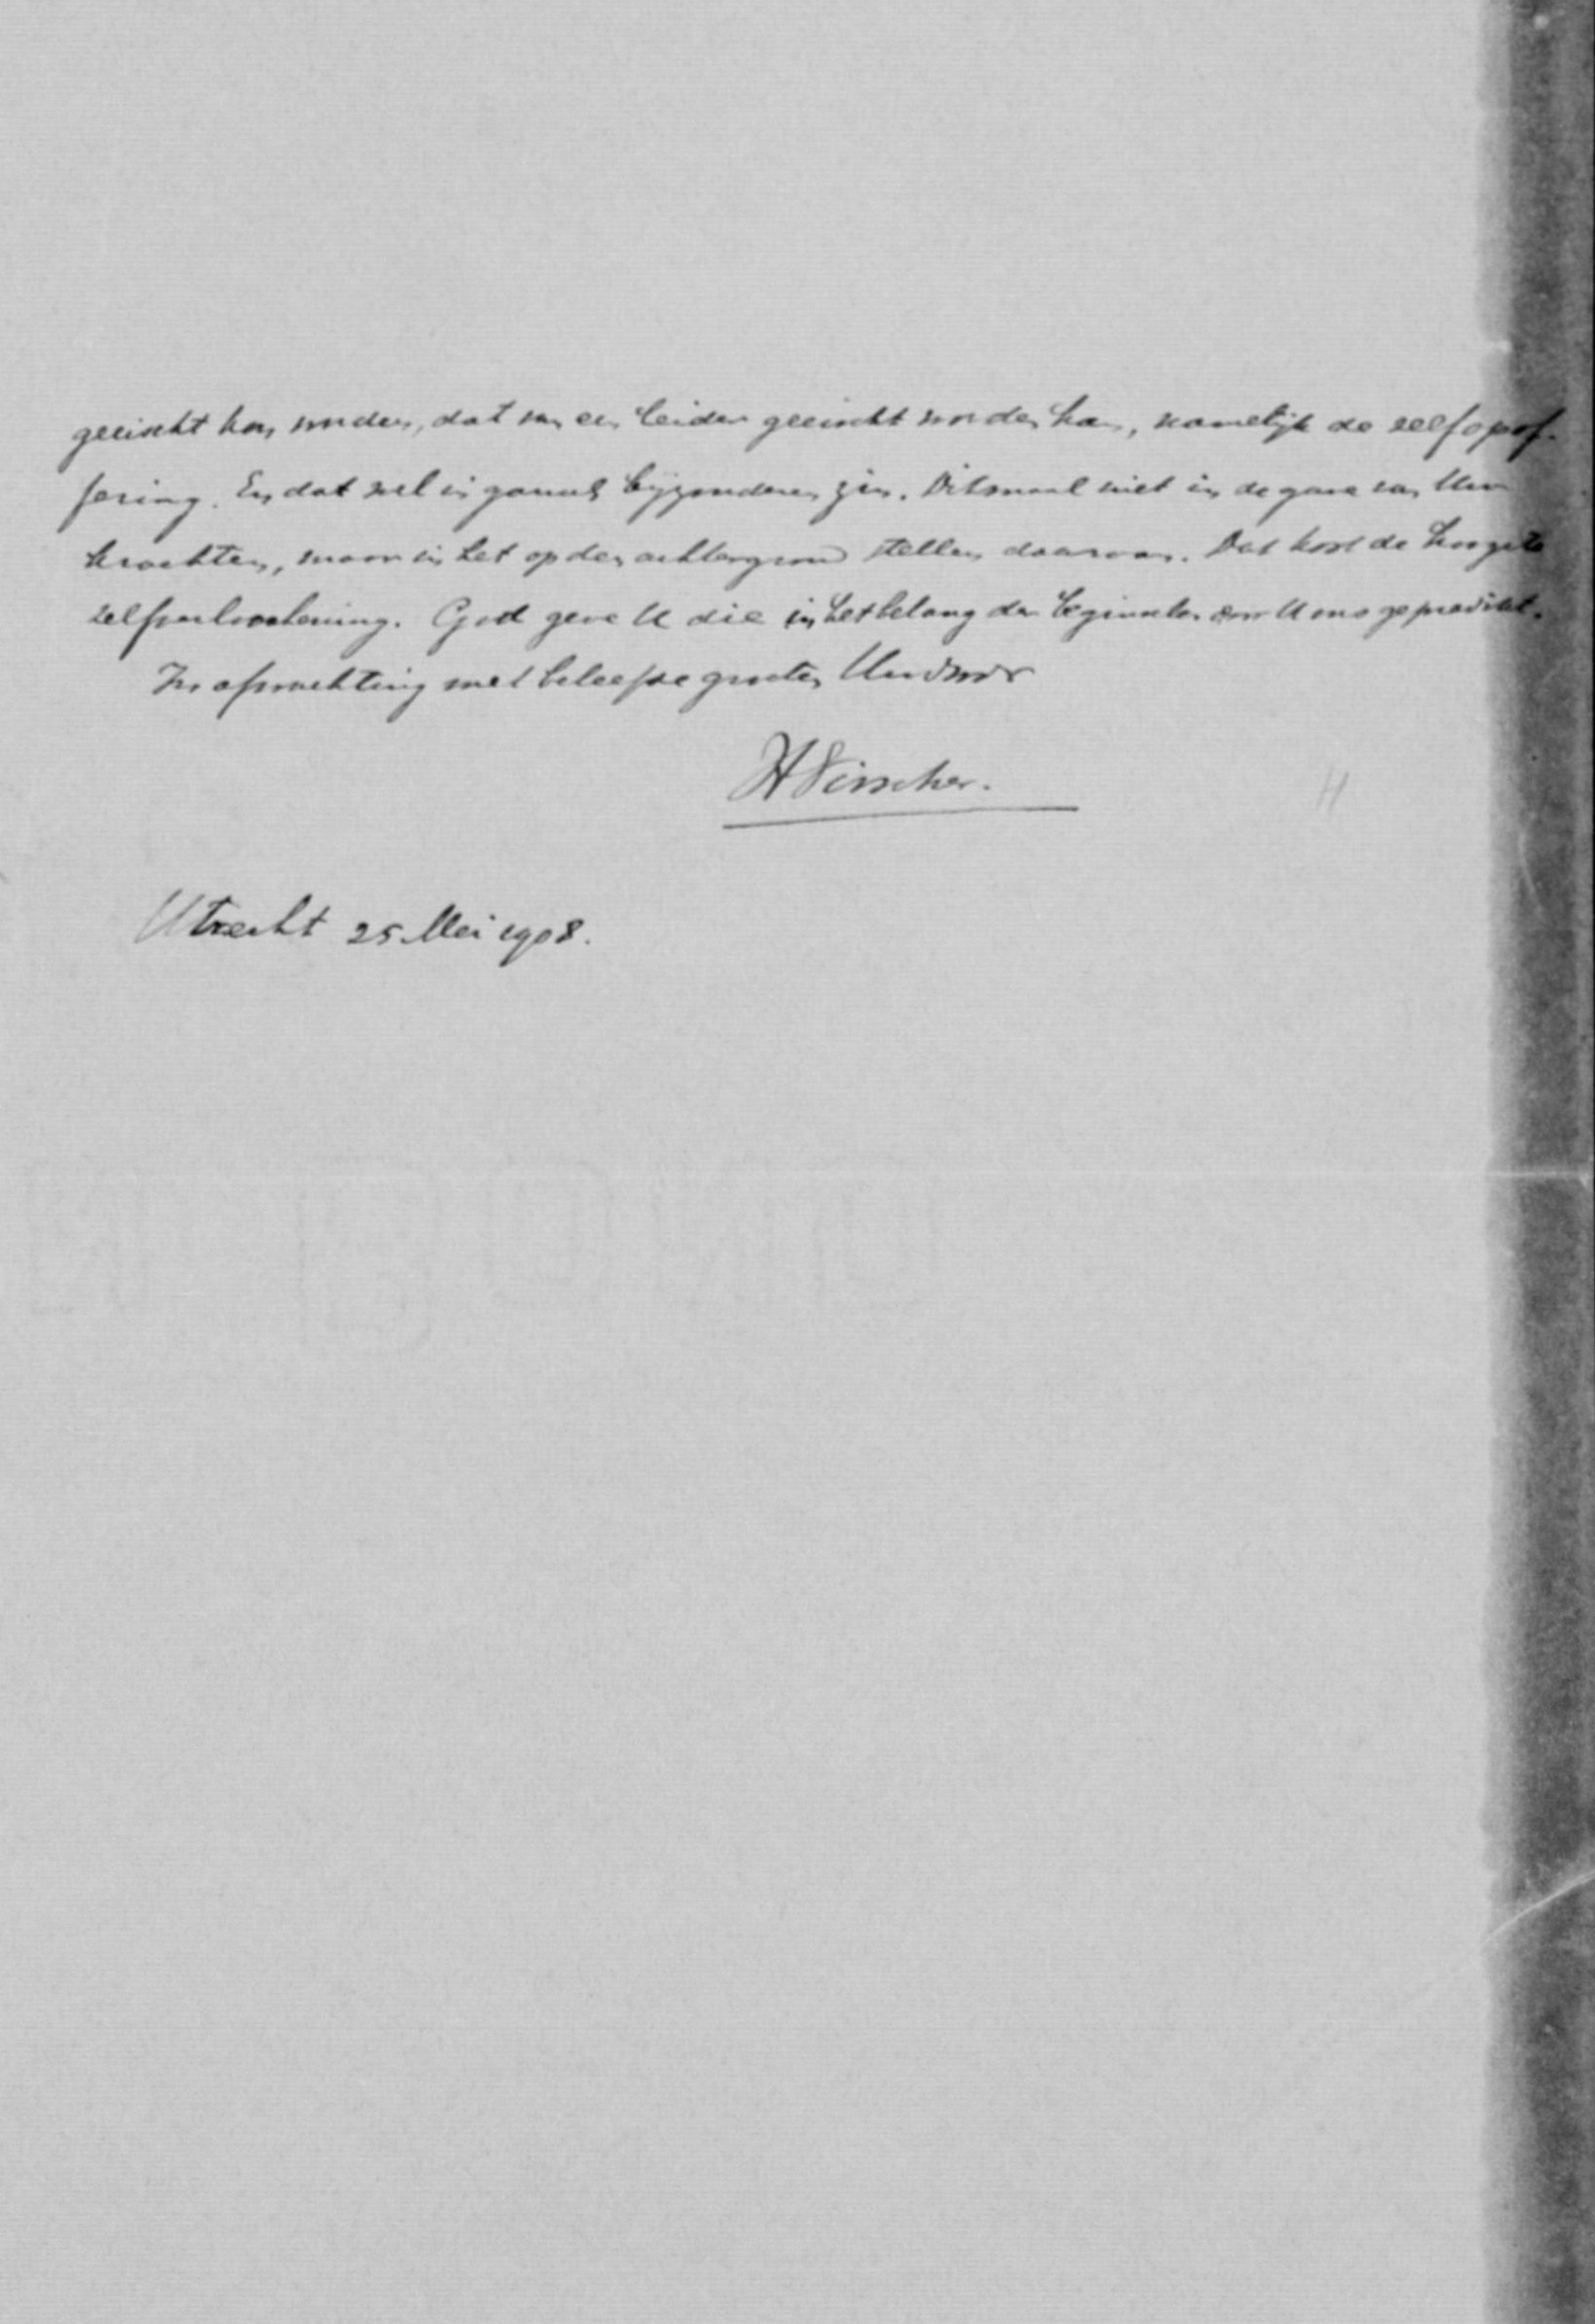 geëischt kan worden, dat van een leider geeischt worden kan, namelijk de zelfopof-
fering. En dat wel in gansch bijzonderen zin. Ditmaal niet in de gave van Uw
krachten, maar in het op den achtergrond stellen daarvan. Dat kost de hoogste
zelfverloochening. God geve U die in het belang der beginselen door U ons gepredikt.
Hoogachting met beleefde groeten Uw dw dr
HVisscher.
H
Utrecht 25 Mei 1908.